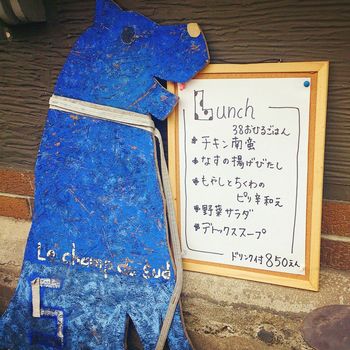 Lunch
38おひるごはん
* チキン南蛮
* なすの揚げびたし
* もやしとちくわの
ピリ辛和え
* 野菜サラダ
* デトックススープ
ドリンク付 850えん
Le champ du sud